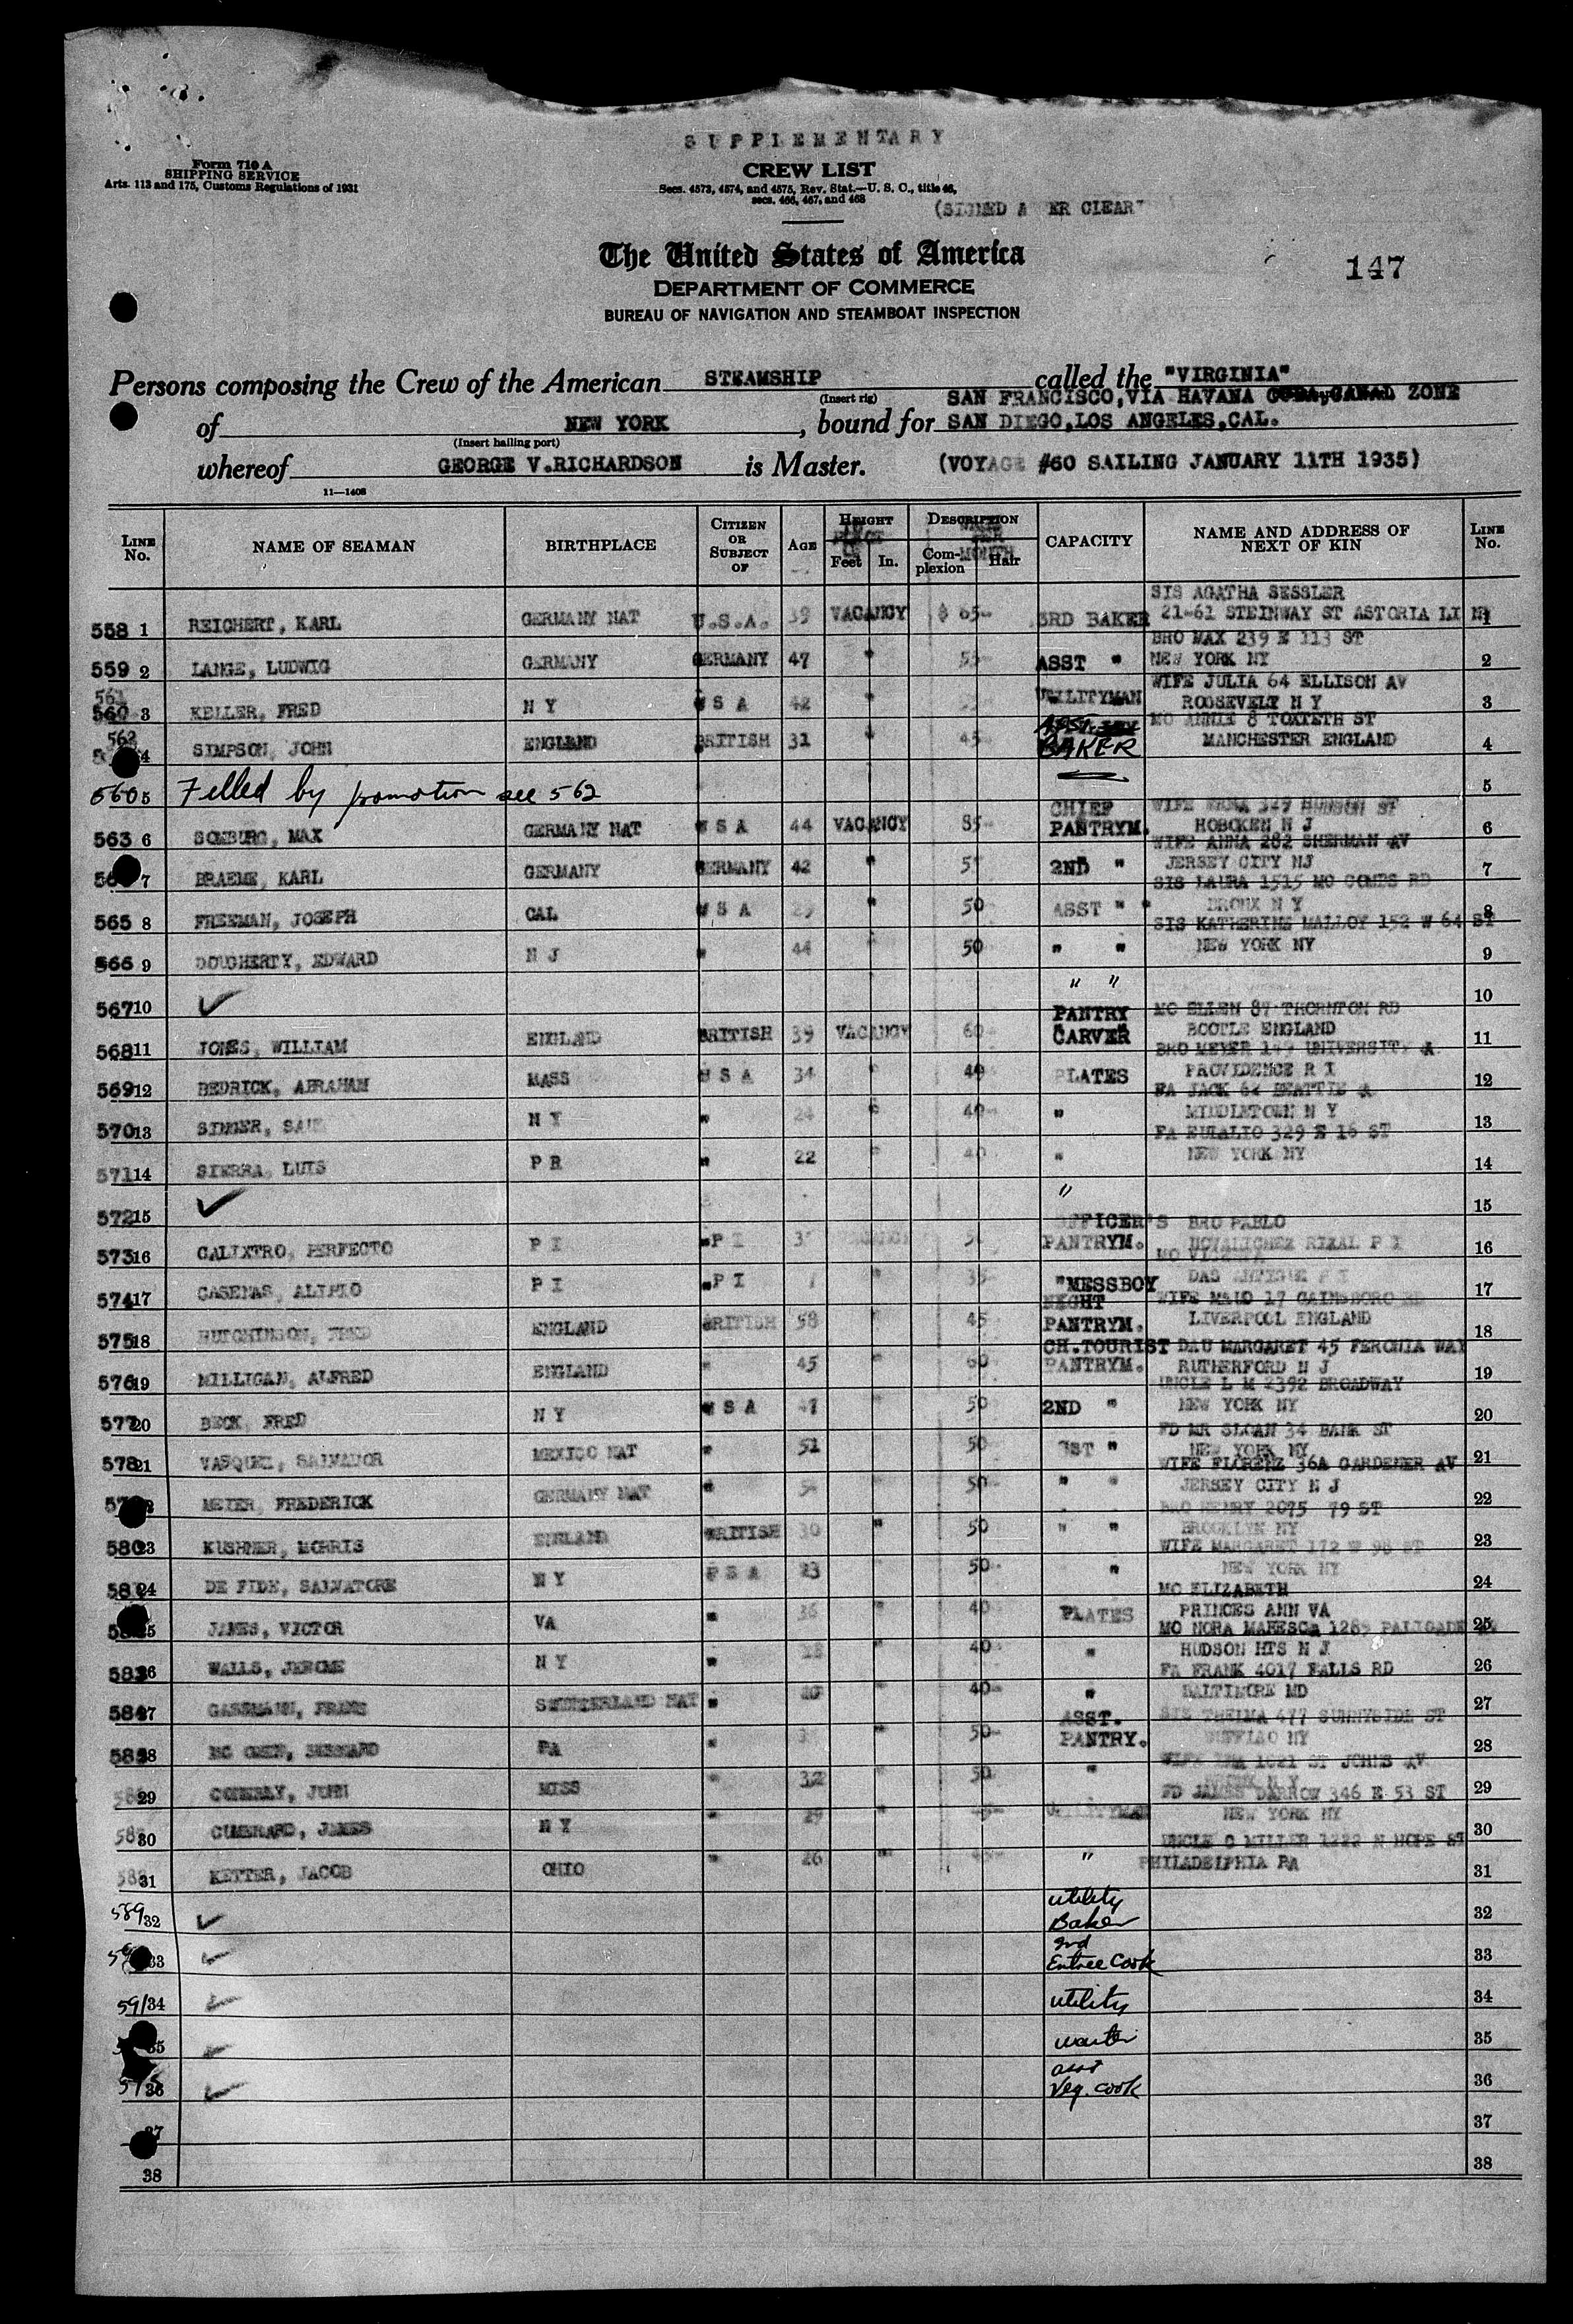 SUPPLEMENTARY
Form 710 A
SHIPPING SERVICE
Arts. 113 and 175, Customs Regulations of 1931
CREW LIST
Secs. 4573, 4574, and 4575, Rev. Stat.—U. S. C., title 46,
secs. 466, 467, and 468
(SIGNED A ER CLEAR
The United States of America
147
DEPARTMENT OF COMMERCE
BUREAU OF NAVIGATION AND STEAMBOAT INSPECTION
Persons composing the Crew of the American STEAMSHIP called the "VIRGINIA"
(Insert rig) SAN FRANCISCO, VIA HAVANA CUBA, CANAL ZONE
of NEW YORK, bound for SAN DIEGO, LOS ANGELES, CAL.
(Insert hailing port)
whereof GEORGE V. RICHARDSON is Master. (VOYAGE #60 SAILING JANUARY 11TH 1935)
11—1408
LINE No. NAME OF SEAMAN BIRTHPLACE CITIZEN OR SUBJECT OF AGE HEIGHT Feet In. DESCRIPTION Complexion Hair CAPACITY NAME AND ADDRESS OF NEXT OF KIN LINE No.
SIS AGATHA SESSLER
558 1 REICHERT, KARL GERMANY NAT U.S.A. 39 VACANCY $ 65- 3RD BAKER 21-61 STEINWAY ST ASTORIA LI NY 1
BRO MAX 239 E 113 ST
559 2 LANGE, LUDWIG GERMANY GERMANY 47 " 55- ASST " NEW YORK NY 2
WIFE JULIA 64 ELLISON AV
561
560 3 KELLER, FRED N Y U S A 42 " UTILITYMAN ROOSEVELT N Y 3
MO ANNIE 8 TOXTETH ST
562
4 SIMPSON, JOHN ENGLAND BRITISH 31 " 45- BAKER MANCHESTER ENGLAND 4
560 5 Filled by promotion see 562 5
CHIEF WIFE ERNA 329 HUDSON ST
563 6 SOMBURG, MAX GERMANY NAT U S A 44 VACANCY 85- PANTRYM. HOBOKEN N J 6
WIFE ANNA 282 SHERMAN AV
7 BRAEME, KARL GERMANY GERMANY 42 " 2ND " JERSEY CITY NJ 7
SIS LAURA 1515 MC COMBS RD
565 8 FREEMAN, JOSEPH CAL U S A 29 " 50 ASST " BRONX N Y 8
SIS KATHERINE MALLOY 152 W 64 ST
566 9 DOUGHERTY, EDWARD N J " 44 " 50 " " NEW YORK NY 9
567 10 ✓ " " 10
PANTRY MO ELLEN 87 THORNTON RD
568 11 JONES, WILLIAM ENGLAND BRITISH 39 VACANCY 60- CARVER BOOTLE ENGLAND 11
BRO MEYER 149 UNIVERSITY A
569 12 BEDRICK, ABRAHAM MASS U S A 34 " 40 PLATES PROVIDENCE R I 12
FA JACK 64 BEATTIE A
570 13 SINGER, SAUL N Y " 24 " 40- " MIDDLETOWN N Y 13
FA EULALIO 329 E 16 ST
571 14 SIERRA, LUIS P R " 22 " 40- " NEW YORK NY 14
572 15 ✓ " 15
OFFICER'S BRO PABLO
573 16 CALIXTRO, PERFECTO P I P I VACANCY PANTRYM. NOVALICHEZ RIZAL P I 16
574 17 CASENAS, ALIPIO P I P I " 35- "MESSBOY 17
NIGHT WIFE MAUD 17 GAINSBORO RD
575 18 HUTCHINSON, FRED ENGLAND BRITISH 58 " 45- PANTRYM. LIVERPOOL ENGLAND 18
CH.TOURIST DAU MARGARET 45 FERONIA WAY
576 19 MILLIGAN, ALFRED ENGLAND " 45 " 60 PANTRYM. RUTHERFORD N J 19
UNCLE L M 2392 BROADWAY
577 20 BECK, FRED N Y U S A 47 50 2ND " NEW YORK NY 20
FD MR SLOAN 34 BANK ST
578 21 VASQUEZ, SALVADOR MEXICO NAT " 51 50 " NEW YORK NY 21
WIFE FLORENZ 36A GARDENER AV
22 MEIER, FREDERICK GERMANY NAT " " 50 " " JERSEY CITY N J 22
BRO HENRY 2075 79 ST
580 23 KUSHNER, MORRIS ENGLAND BRITISH 30 " 50 " " BROOKLYN NY 23
WIFE MARGARET 172 W 98 ST
581 24 DE FIDE, SALVATORE N Y U S A 23 50 " NEW YORK NY 24
MO ELIZABETH
25 JAMES, VICTOR VA " 36 " 40 PLATES PRINCES ANN VA 25
MO NORA MARESCA 1289 PALISADE
583 26 WALLS, JEROME N Y " " 40 " HUDSON HTS N J 26
FA FRANK 4017 FALLS RD
584 27 GASSMANN, SWITZERLAND NAT " " 40- " BALTIMORE MD 27
ASST. SIS THELMA 477 SUNNYSIDE ST
585 28 PA " " 50- PANTRY. BUFFALO NY 28
1021 ST JOHNS AV
29 JOHN MISS " 32 " 50 " 29
FD JAMES DARROW 346 E 53 ST
587 30 JAMES N Y " 29 " UTILITYMAN NEW YORK NY 30
UNCLE C MILLER 1222 N HOPE ST
31 KETTER, JACOB OHIO " 26 " " PHILADELPHIA PA 31
589 32 ✓ utility Baker 32
33 ✓ 2nd Entree Cook 33
591 34 ✓ utility 34
35 ✓ waiter 35
36 ✓ asst Veg. cook 36
37 37
38 38